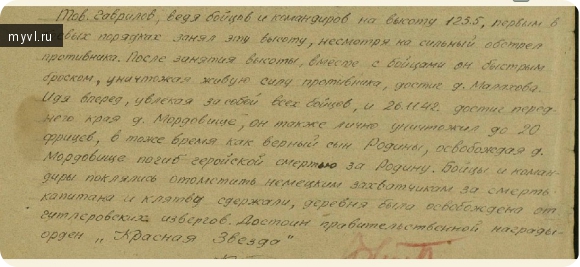 Тов. Гаврилов, ведя бойцов и командиров на высоту 123.5, первым в
myvl.ru
порядках занял эту высоту, несмотря на сильный обстрел
противника. После занятия высоты, вместе с бойцами он быстрым
броском, уничтожая живую силу противника, достиг д. Малахова.
Идя вперед, увлекая за собой всех бойцов, и 26.11.42. достиг перед-
него края д. Мордовище, он также лично уничтожил до 20
фрицев, в тоже время как верный сын Родины, освобождая д.
Мордовище погиб геройской смертью за Родину. Бойцы и коман-
диры поклялись отомстить немецким захватчикам за смерть
капитана и клятву сдержали, деревня была освобождена от
гитлеровских извергов. Достоин правительственной награды-
орден "Красная Звезда"